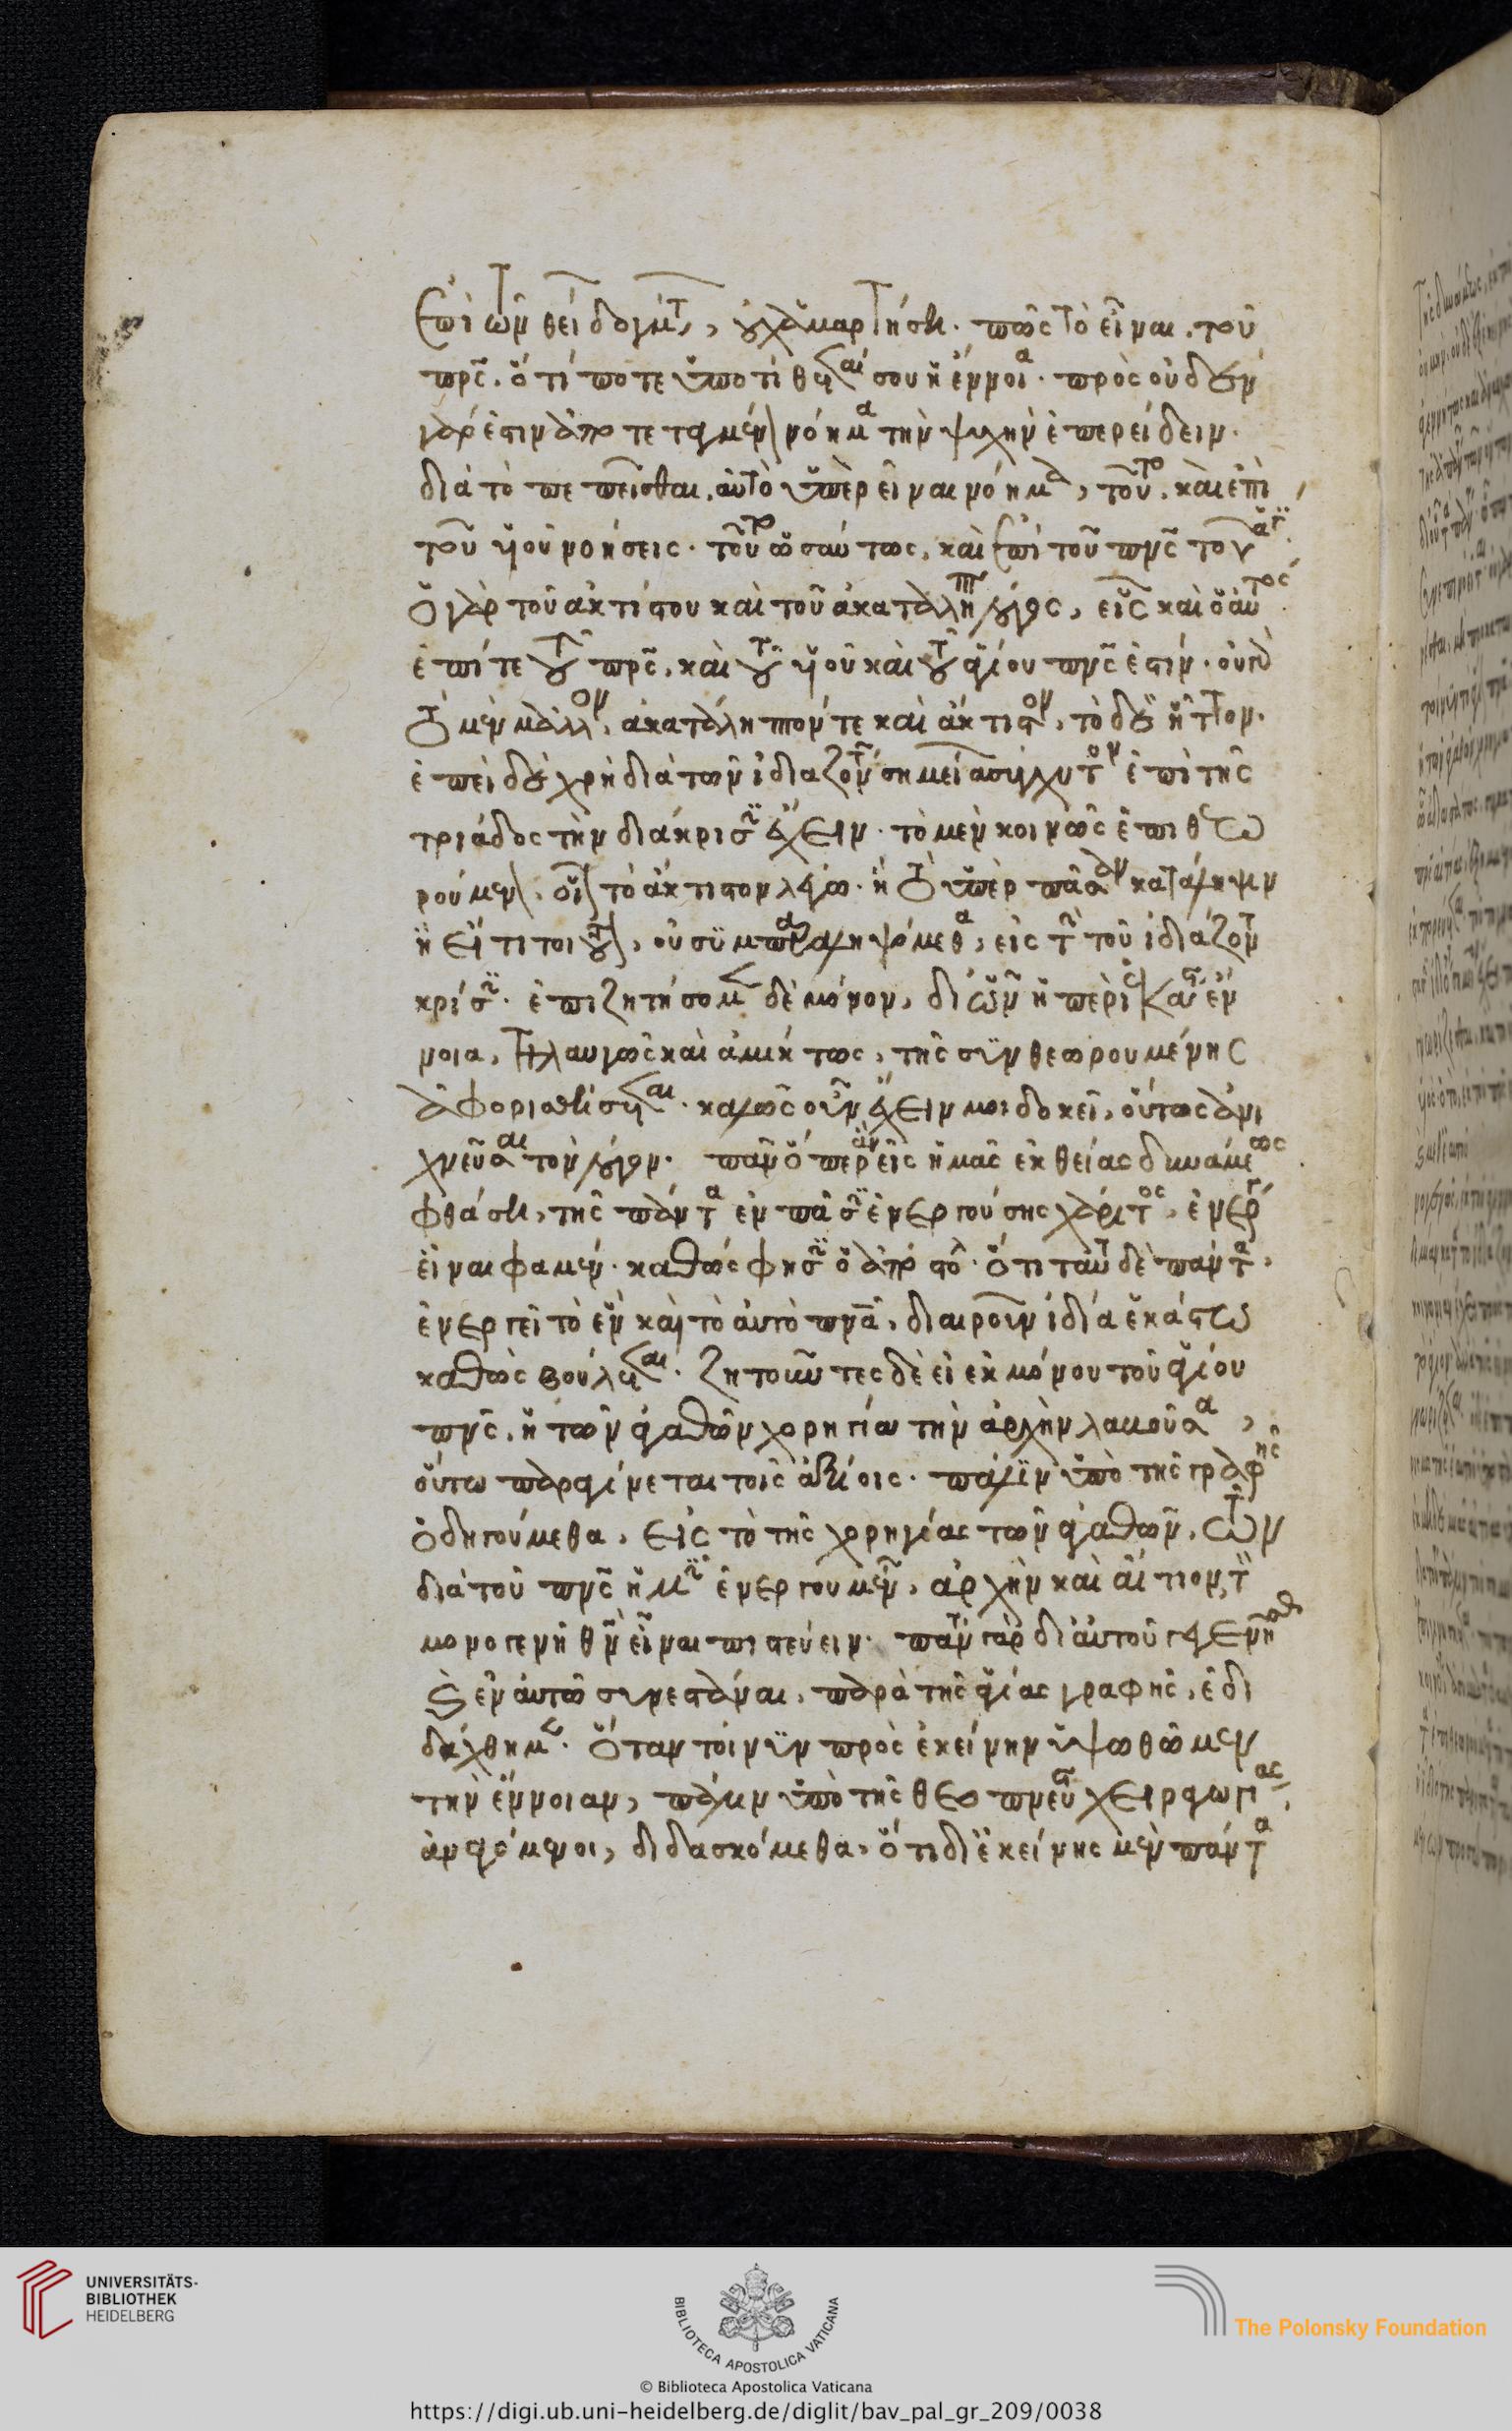 ἐπὶ τῶν θείων δογμάτων, οὐχ ἁμαρτήσῃ. πῶς τὸ εἶναι τοῦ
πρς. ὅτί ποτε ὑποτίθεταί σου ἡ ἔννοια. πρὸς οὐδὲν
γάρ ἐστιν ἀποτεταγμένον νόημα τὴν ψυχὴν ἐπερείδειν.
διὰ τὸ πεπεῖσθαι, αὐτὸ ὑπὲρ εἶναι νόημα, τοῦτο. καὶ ἐπὶ
τοῦ υἱοῦ νοήσεις. τοῦτο ὡσαύτως, καὶ ἐπὶ τοῦ πνς τοῦ ἁγί
ὁ γὰρ τοῦ ἀκτίστου καὶ τοῦ ἀκαταλήπτου λόγος, εἷς καὶ ὁ αὐτός
ἐπί τε τοῦ πρς, καὶ τοῦ υἱοῦ καὶ τοῦ ἁγίου πνς ἐστίν. οὐ γὰρ
τὸ μὲν μᾶλλον, ἀκατάληπτόν τε καὶ ἄκτιστον, τὸ δὲ ἧττον.
ἐπεὶ δὲ χρὴ διὰ τῶν ἰδιαζόντων σημείων ἀσύγχυτον ἐπὶ τῆς
τριάδος τὴν διάκρισιν ἔχειν. τὸ μὲν κοινῶς ἐπιθεω
ρούμενον. οἷον τὸ ἄκτιστον λέγω. ἢ τὸ ὑπὲρ πᾶσαν κατάληψιν
ἢ εἴ τι τοιοῦτον, οὐ συμπαραληψόμεθα, εἰς τὴν τοῦ ἰδιάζοντος
κρίσιν. ἐπιζητήσομεν δὲ μόνον, δι' ὧν ἡ περὶ ἑκάστου ἔν
νοια, τηλαυγῶς καὶ ἀμίκτως, τῆς συνθεωρουμένης
ἀφορισθήσεται. καλῶς οὖν ἔχειν μοι δοκεῖ, οὕτως ἀνι
χνεῦσαι τὸν λόγον. πᾶν ὅπερ ἂν εἰς ἡμᾶς ἐκ θείας δυνάμεως
φθάσῃ, τῆς πάντα ἐν πᾶσιν ἐνεργούσης χάριτος, ἐνέρ
εἶναι φαμέν. καθώς φησιν ὁ ἀπόστολος. ὅτι ταῦτα δὲ πάντα,
ἐνεργεῖ τὸ ἓν καὶ τὸ αὐτὸ πνα, διαιροῦν ἰδίᾳ ἑκάστω
καθὼς βούλεται. ζητοῦντες δὲ εἰ ἐκ μόνου τοῦ ἁγίου
πνς, ἡ τῶν ἀγαθῶν χορηγία τὴν ἀρχὴν λαβοῦσα,
οὕτω παραγίνεται τοῖς ἀξίοις. πάλιν ὑπὸ τῆς γραφῆς
ὁδηγούμεθα, εἰς τὸ τῆς χορηγίας τῶν ἀγαθῶν, τῶν
διὰ τοῦ πνς ἡμῖν ἐνεργουμένων, ἀρχὴν καὶ αἴτιον, τὸν
μονογενῆ θν εἶναι πιστεύειν. πάντα γὰρ δι' αὐτοῦ γεγενῆσθαι
καὶ ἐν αὐτῷ συνεστάναι, παρὰ τῆς ἁγίας γραφῆς, ἐδι
δάχθημεν. ὅταν τοίνυν πρὸς ἐκείνην ὑψωθῶμεν
τὴν ἔννοιαν, πάλιν ὑπὸ τῆς θεοπνεύστου χειραγωγίας
ἀναγόμενοι, διδασκόμεθα, ὅτι δι' ἐκείνης μὲν πάντα
UNIVERSITÄTS-
BIBLIOTHEK
HEIDELBERG
BIBLIOTECA APOSTOLICA VATICANA
The Polonsky Foundation
© Biblioteca Apostolica Vaticana
https://digi.ub.uni-heidelberg.de/diglit/bav_pal_gr_209/0038